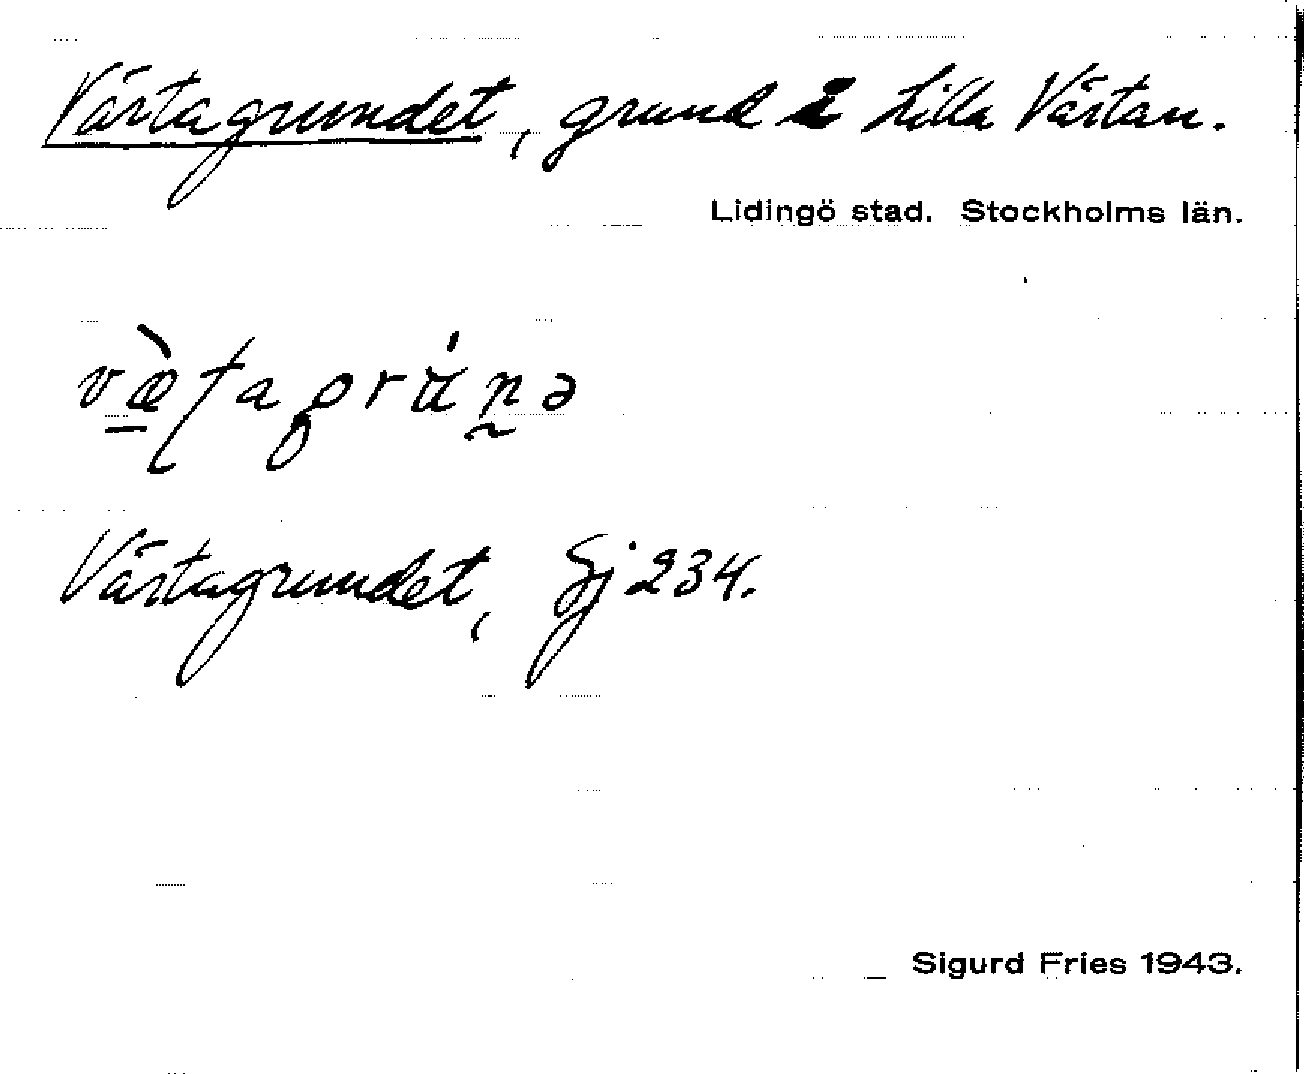 Värtagrundet, grund i Lilla Värtan.
Lidingö stad. Stockholms län.
væ̀ʈagrún̰ə
Värtagrundet, Sj 234.
Sigurd Fries 1943.